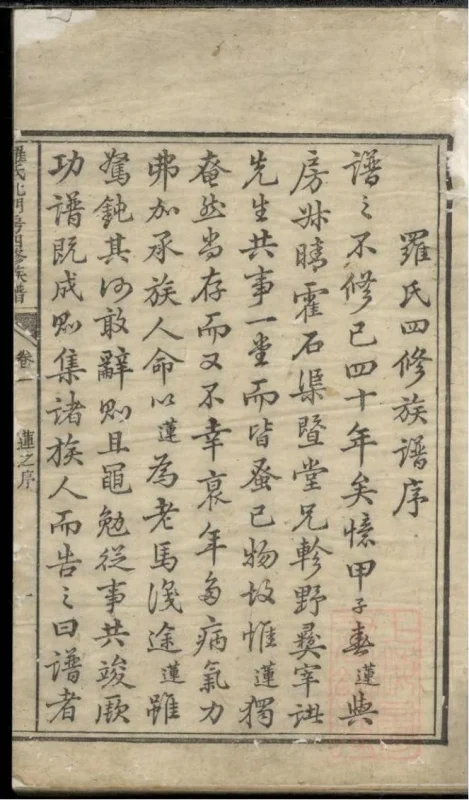 羅氏四修族譜序
譜之不修已四十年矣憶甲子春蓮與
房叔晴霍石渠暨堂兄軫野彛宰諸
先生共事一堂而皆蚤已物故惟蓮獨
奄然尚存而又不幸衰年多病氣力
弗加承族人命以蓮為老馬識途蓮雖
駑鈍其何敢辭則且黽勉從事共竣厥
功譜既成則集諸族人而告之曰譜者
羅氏北門房四修族譜
卷一
蓮之序
一